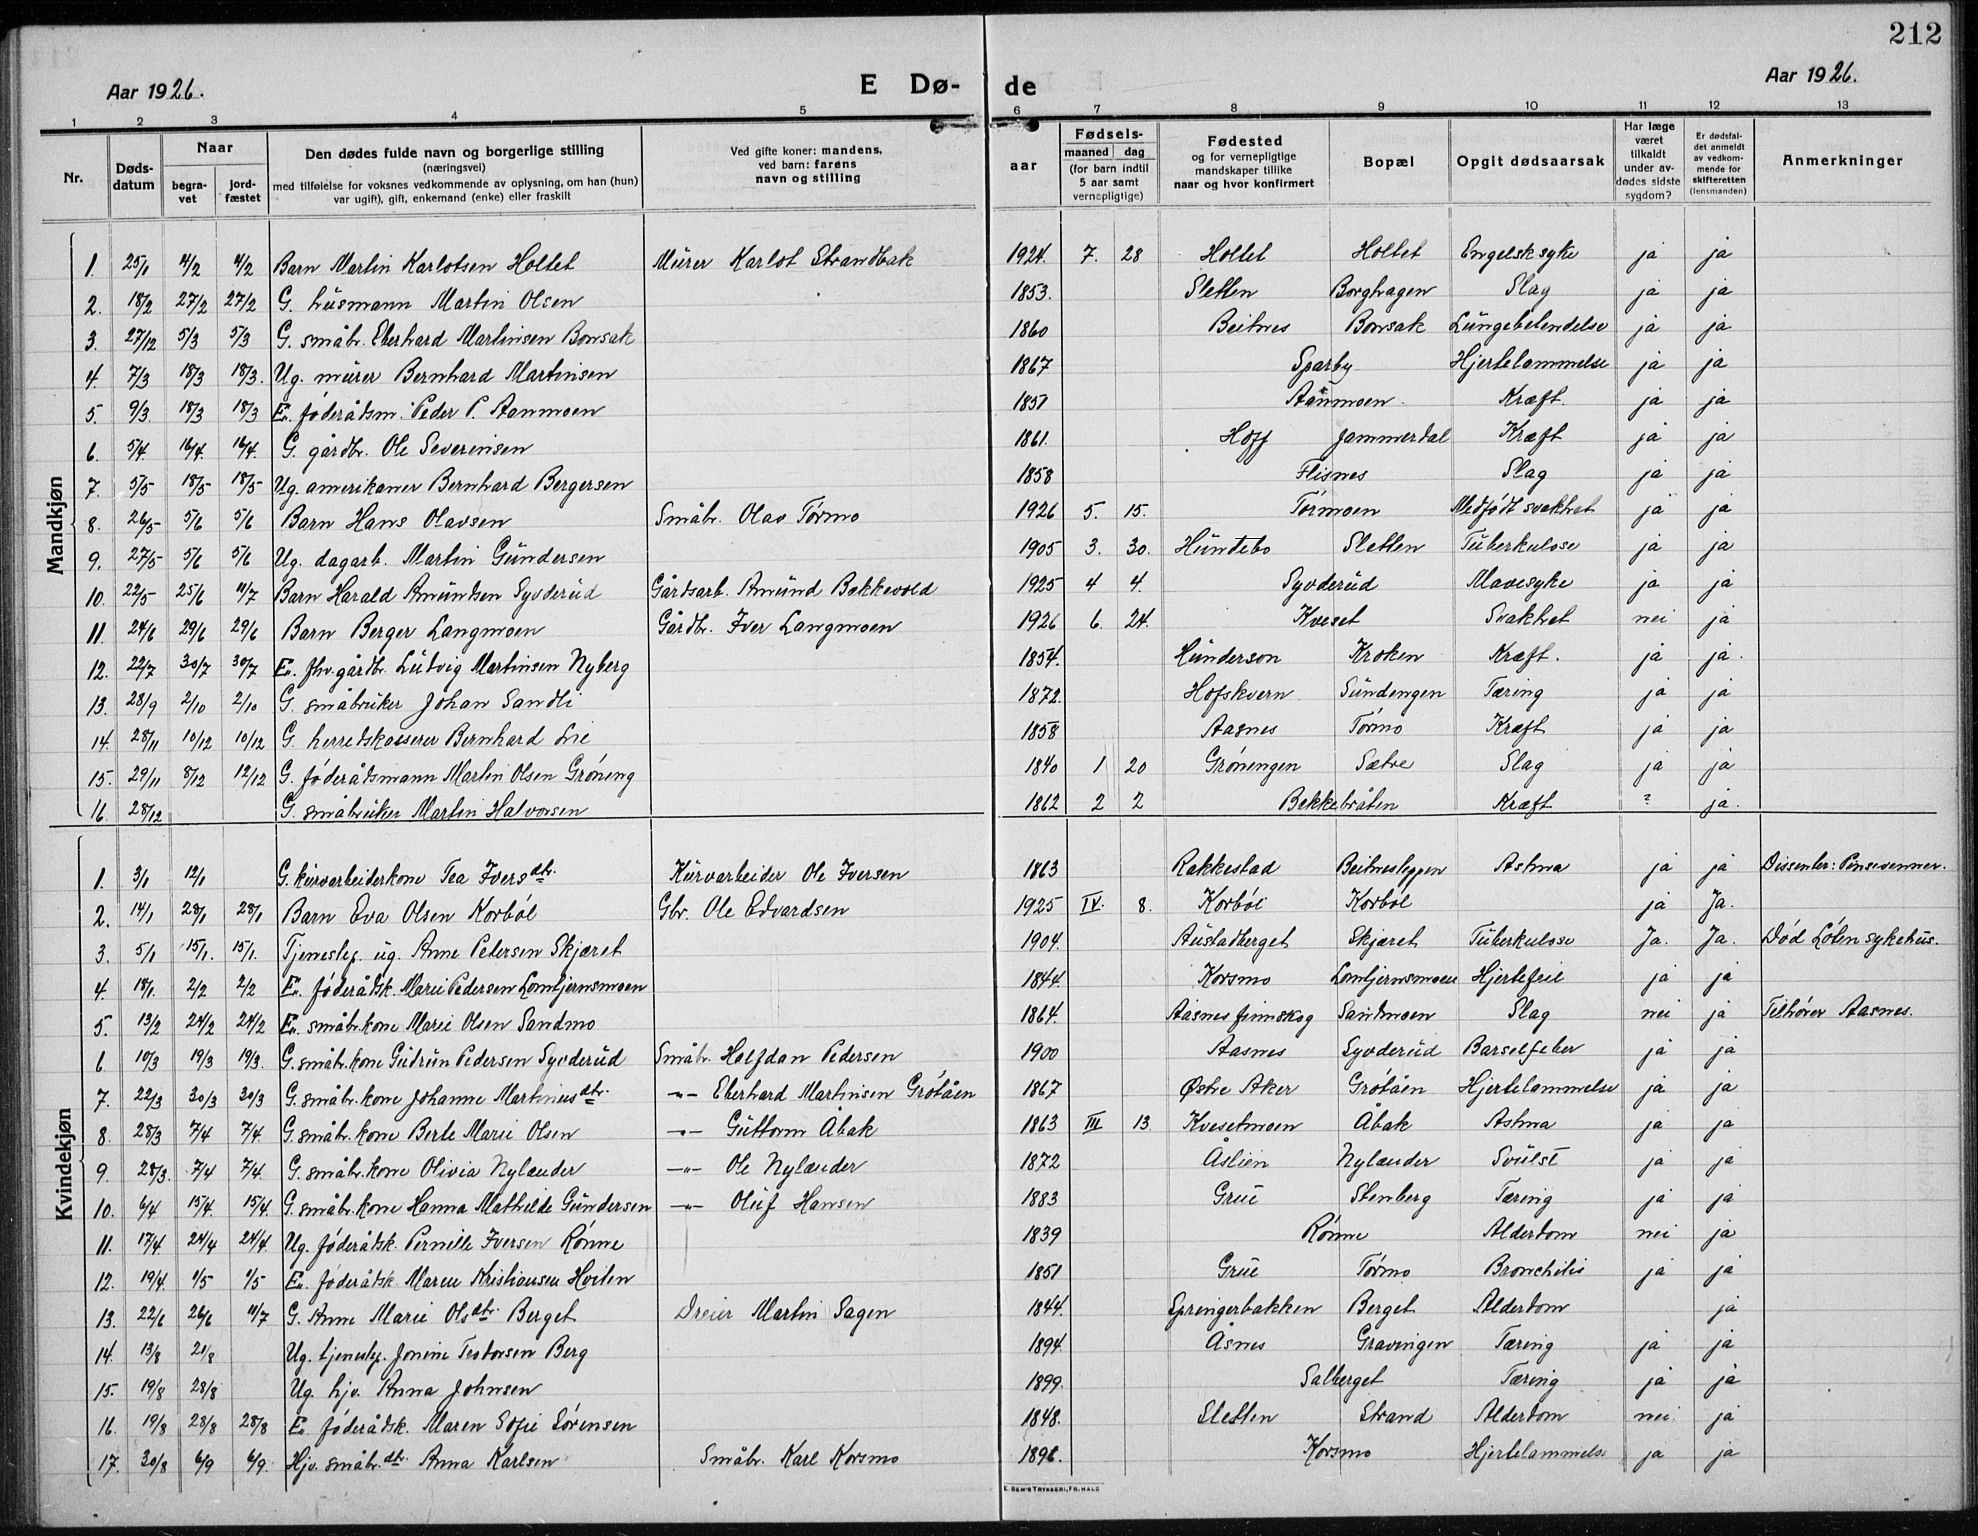 212
Aar 1926. E Dø- de Aar 1926.
1 2 3 4 5 6 7 8 9 10 11 12 13
Nr. Døds-datum Naar begra-vet jord-fæstet Den dødes fulde navn og borgerlige stilling (næringsvei) med tilføielse for voksnes vedkommende av oplysning, om han (hun) var ugift), gift, enkemand (enke) eller fraskilt Ved gifte koner: mandens, ved barn: farens navn og stilling aar Fødsels- maaned dag (for barn indtil 5 aar samt vernepligtige) Fødested og for vernepligtige mandskaper tillike naar og hvor konfirmert Bopæl Opgit dødsaarsak Har læge været tilkaldt under av-dødes sidste sygdom? Er dødsfal-det anmeldt av vedkom-mende for skifteretten (lensmanden) Anmerkninger
Mandkjøn
1. 25/1 4/2 4/2 Barn Martin Karlotsen Holtet Murer Karlot Strandbak 1924. 7. 28 Holtet Holtet Engelsk syke ja ja
2. 18/2 27/2 27/2 G. husmann Martin Olsen 1853. Sletten Borghagen Slag ja ja
3. 27/12 5/3 5/3 G. småbr. Eberhard Martinsen Bonsak 1860 Beitnes Bonsak Lungebetendelse ja ja
4. 7/3 18/3 18/3. Ug. murer Bernhard Martinsen 1867 Sparby Hjertelammelse ja ja
5. 9/3 18/3 18/3 E. føderådsm. Peder P. Aanmoen 1851 Aanmoen. Kræft. ja ja
6. 5/4. 16/4. 16/4. G. gårdbr. Ole Severinsen 1861. Hoff Jammerdal Kræft ja ja
7. 5/5 18/5 18/5 Ug. amerikaner Bernhard Bergersen 1858 Flisnes Slag ja ja
8. 26/5 5/6 5/6 Barn Hans Olavsen Småbr. Olav Tørmo 1926 5. 15. Törmoen Medfödt svakhet ja ja
9. 27/5 5/6 5/6 Ug. dagarb. Martin Gundersen 1905 3. 30. Hundebo Sletten Tuberkulose ja ja
10. 22/5 25/6 11/7 Barn Harald Amundsen Syverud Gårdsarb. Amund Bakkevold 1925 4 4. Syverud Mavesyke ja ja
11. 24/6 29/6 29/6 Barn Berger Langmoen Gårdbr. Iver Langmoen 1926 6. 24. Kveset Svakhet nei ja
12. 22/7 30/7 30/7 E. fhv. gårdbr. Ludvig Martinsen Nyberg 1854. Hunderson Kroken Kræft. ja ja.
13. 28/9 2/10 2/10 G. småbruker Johan Sandli 1872. Hofskvern Sundengen Tæring ja ja
14. 28/11 10/12 10/12 G. herredskasserer Bernhard Lie 1858 Aasnes Törmo Kræft ja ja
15. 29/11 8/12 12/12 G. føderådsmann Martin Olsen Gröneng 1840 1 20 Gröningen Sætre Slag ja ja
16. 28/12 G. småbruker Martin Halvorsen 1862 2 2 Bekkebråten Kræft ? ja.
Kvindekjøn
1. 3/1 12/1 G. kurvarbeiderkone Tea Iversdtr. Kurvarbeider Ole Iversen 1863 Rakkestad Beitnesteppen Astma ja ja Dissenter: Pinsevenner.
2. 14/1 28/1 28/1 Barn Eva Olsen Korböl Gbr. Ole Edvardsen 1925 IV. 8. Korböl Korböl ja Ja.
3. 5/1 15/1. 15/1. Tjenestep. ug. Anne Petersen Skjæret 1904. Austadberget Skjæret Tuberkulose Ja. Ja. Död Löten sykehus.
4. 18/1. 2/2 2/2 E. föderådsk. Marie Pedersen Lomtjernsmoen 1844. Korsmo Lomtjernsmoen Hjertefeil ja ja
5. 13/2 24/2 24/2 E. småbr. kone Marie Olsen Sandmo 1864. Aasnes finnskog Sandmoen Slag nei ja Tilhører Aasnes.
6 10/3 19/3 19/3. G. småbr. kone Gudrun Pedersen Syverud Småbr. Halfdan Pedersen 1900 Aasnes Syverud Barselfeber ja ja
7. 22/3 30/3 30/3 G. småbr. kone Johanne Martinusdtr. -"- Eberhard Martinsen Grötåen 1867 Østre Aker Grötåen Hjertelammelse ja ja
8. 28/3 7/4 7/4. G. småbr. kone Berte Marie Olsen -"- Guttorm Åbak 1863 III 13. Kvesetmoen Åbak Astma ja ja
9. 28/3. 7/4 7/4. G. småbr. kone Olivia Nylænder -"- Ole Nylænder 1872 Åslien Nylænder Svulst ja ja
10. 6/4 15/4. 15/4. G. småbr. kone Hanna Mathilde Gundersen -"- Oluf Hansen 1883 Grue Stenberg Tæring ja ja
11. 17/4 24/4 24/4. Ug. føderådsk. Pernille Iversen Rönne 1839 Rönne Alderdom nei ja
12. 19/4. 1/5 1/5 E. føderådsk. Maren Kristiansen Hoiten 1851 Grue Törmo Bronchitis ja ja
13. 22/6 26/6 11/7 G. Anne Marie Olsdtr. Berget Dreier Martin Sagen 1844. Springerbakken Berget Alderdom ja
14. 13/8 21/8 Ug. tjenestep. Jonine Teodorsen Berg 1894. Åsnes Gravingen Tæring ja ja
15. 19/8 28/8 Ug. hjv. Anna Johnsen 1899. Salberget Tæring ja ja
16. 19/8 28/8 28/8 E. føderådsk. Maren Sofie Sörensen 1848. Sletten Strand Alderdom nei ja
17. 30/8 6/9 6/9. Hjv. småbr. dtr. Anna Karlsen Småbr. Karl Korsmo 1896. Korsmo Hjertelammelse ja ja
E. SEM'S TRYKKERI, FR.HALD